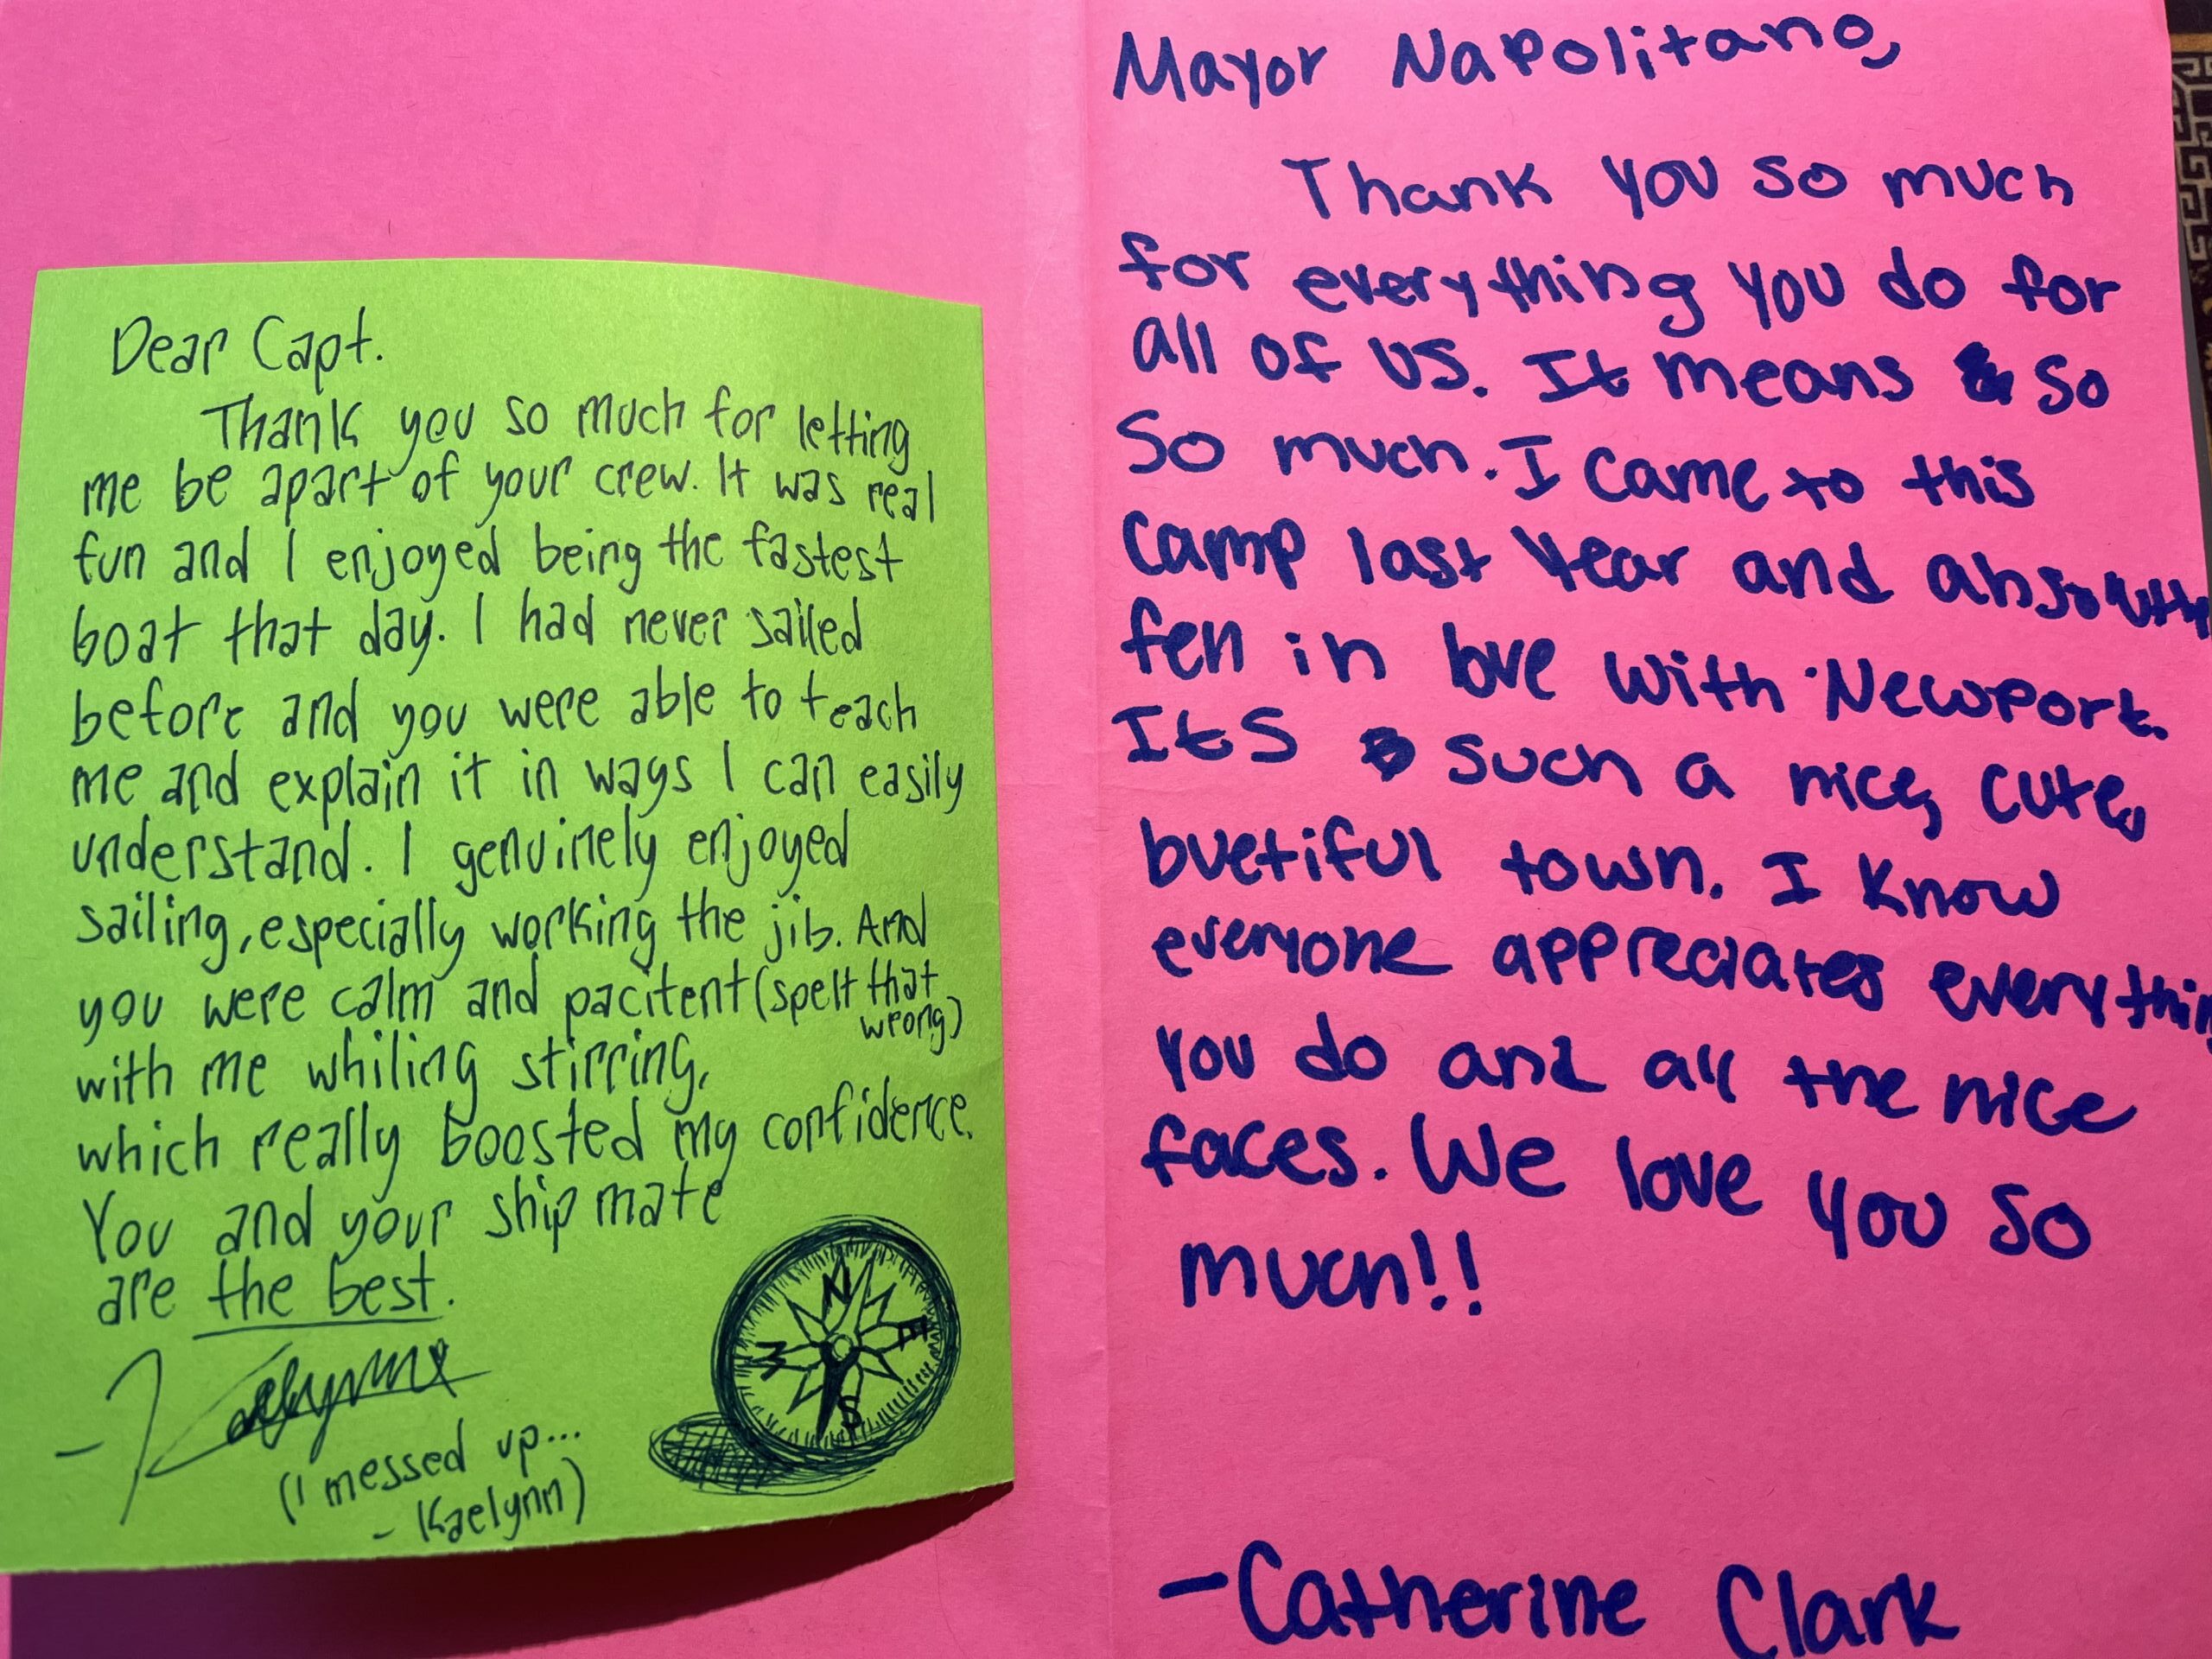 Dear Capt.
Thank you so much for letting
me be apart of your crew. It was real
fun and I enjoyed being the fastest
boat that day. I had never sailed
before and you were able to teach
me and explain it in ways I can easily
understand. I genuinely enjoyed
sailing, especially working the jib. And
you were calm and pacitent (spelt that
wrong)
with me whiling stirring,
which really boosted my confidence.
You and your ship mate
are the best.
- Kaelynn
(I messed up...
- Kaelynn)
N
E
S
W
Mayor Napolitano,
Thank you so much
for everything you do for
all of us. It means so
so much. I came to this
camp last year and
fell in love with Newport.
Its such a nice, cute,
buetiful town. I know
everyone appreciates everythin
you do and all the nice
faces. We love you so
much!!
-Catherine Clark